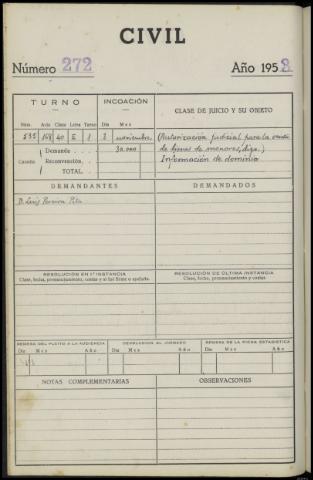 CIVIL
Número 272 Año 1958
TURNO INCOACIÓN CLASE DE JUICIO Y SU OBJETO
Núm. Año Clase Letra Turno Día Mes
535 168 40 E 1 3 noviembre (Autorización judicial para la venta
Cuantía Demanda 30.000 de bienes de menores, digo.)
Reconvención Información de dominio
TOTAL
DEMANDANTES DEMANDADOS
D. Luis Pereira
RESOLUCIÓN EN 1.ª INSTANCIA RESOLUCIÓN DE ÚLTIMA INSTANCIA
Clase, fecha, pronunciamiento, costas y si fué firme o apelada. Clase, fecha, pronunciamiento y costas
REMESA DEL PLEITO A LA AUDIENCIA DEVOLUCIÓN AL JUZGADO REMESA DE LA FICHA ESTADÍSTICA
Día Mes Año Día Mes Año Día Mes Año
NOTAS COMPLEMENTARIAS OBSERVACIONES